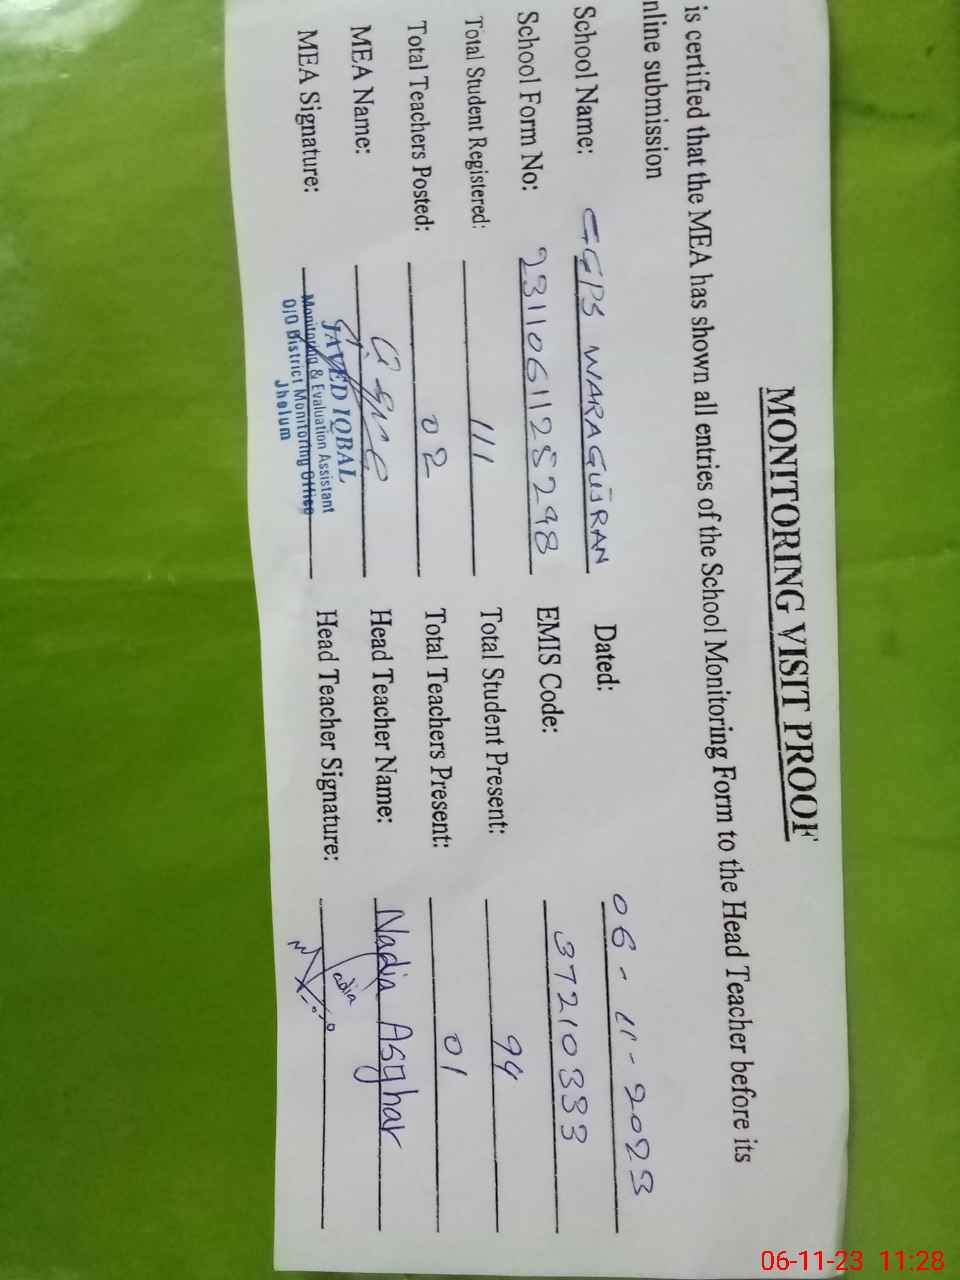 MONITORING VISIT PROOF
is certified that the MEA has shown all entries of the School Monitoring Form to the Head Teacher before its
nline submission
School Name: GGPS WARAGUJRAN Dated: 06-11-2023
School Form No: 2311061128298 EMIS Code: 37210333
Total Student Registered: 111 Total Student Present: 94
Total Teachers Posted: 02 Total Teachers Present: 01
MEA Name: Head Teacher Name: Nadia Asghar
MEA Signature: Head Teacher Signature: adia
JAVED IQBAL
Monitoring & Evaluation Assistant
O/O District Monitoring Office
Jhelum
06-11-23 11:28